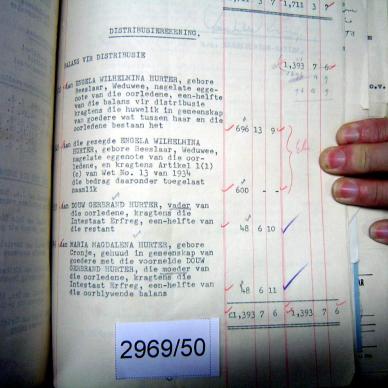 1,711 3
DISTRIBUSIEREKENING.
BALANS VIR DISTRIBUSIE
1,393 7 6
Aan ENGELA WILHELMINA HURTER, gebore
Beeslaar, Weduwee, nagelate egge-
note van die oorledene, een-helfte
van die balans vir distribusie
kragtens die huwelik in gemeenskap
van goedere wat tussen haar en die
oorledene bestaan het 696 13 9
Aan die gesegde ENGELA WILHELMINA
HURTER, gebore Beeslaar, Weduwee,
nagelate eggenote van die oor-
ledene, en kragtens Artikel 1(1)
(c) van Wet No. 13 van 1934
die bedrag daaronder toegelaat
naamlik 600 - -
Aan DOUW GERBRAND HURTER, vader van
die oorledene, kragtens die
Intestaat Erfreg, een-helfte van
die restant 48 6 10
Aan MARIA MAGDALENA HURTER, gebore
Cronje, gehuud in gemeenskap van
goedere met die voornelde DOUW
GERBRAND HURTER, die moeder van
die oorledene, kragtens die
Intestaat Erfreg, een-helfte van
die oorblywende balans 48 6 11
£1,393 7 6 £1,393 7 6
2969/50